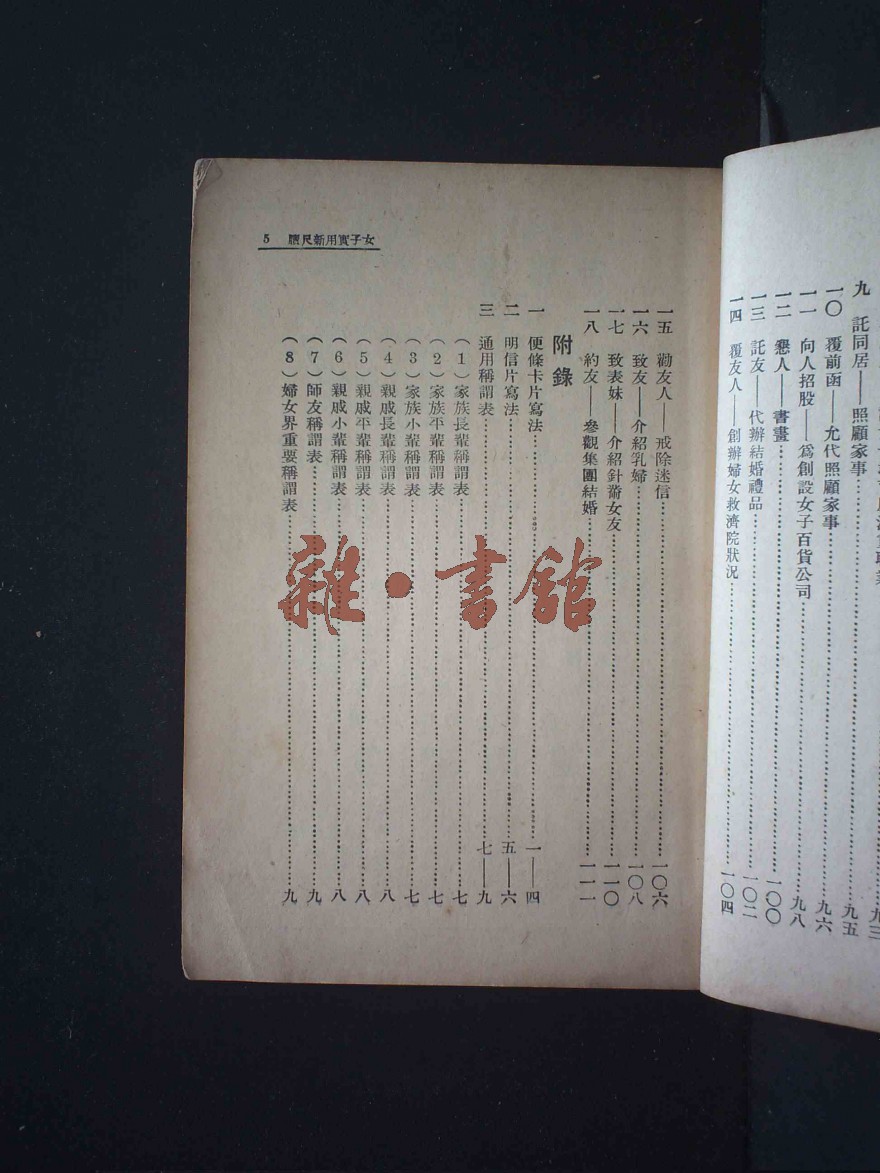 九　託同居——照顧家事……九五
一〇　覆前函——允代照顧家事……九六
一一　向人招股——爲創設女子百貨公司……九八
一二　懇人——書畫……一〇〇
一三　託友——代辦結婚禮品……一〇二
一四　覆友人——創辦婦女救濟院狀況……一〇四
女子實用新尺牘　5
一五　勸友人——戒除迷信……一〇六
一六　致友——介紹乳婦……一〇八
一七　致表妹——介紹針黹女友……一一〇
一八　約友——參觀集團結婚……一一一
附錄
一　便條卡片寫法……一—四
二　明信片寫法……五—六
三　通用稱謂表……七—九
（1）家族長輩稱謂表……七
（2）家族平輩稱謂表……七
（3）家族小輩稱謂表……七
（4）親戚長輩稱謂表……八
（5）親戚平輩稱謂表……八
（6）親戚小輩稱謂表……八
（7）師友稱謂表……九
（8）婦女界重要稱謂表……九
雜·書館